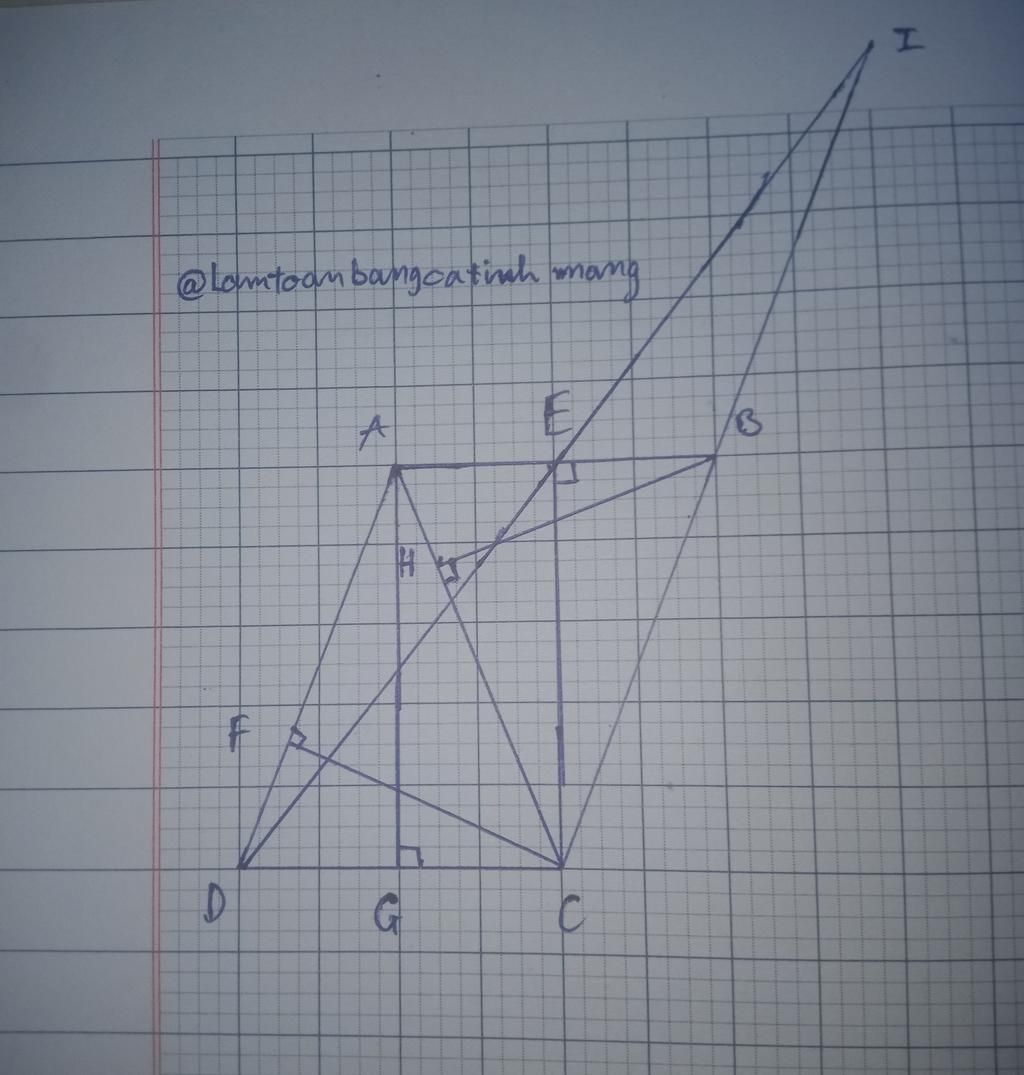 I
@lamtoanbangcatinhmang
E
A
B
H
F
D
G
C